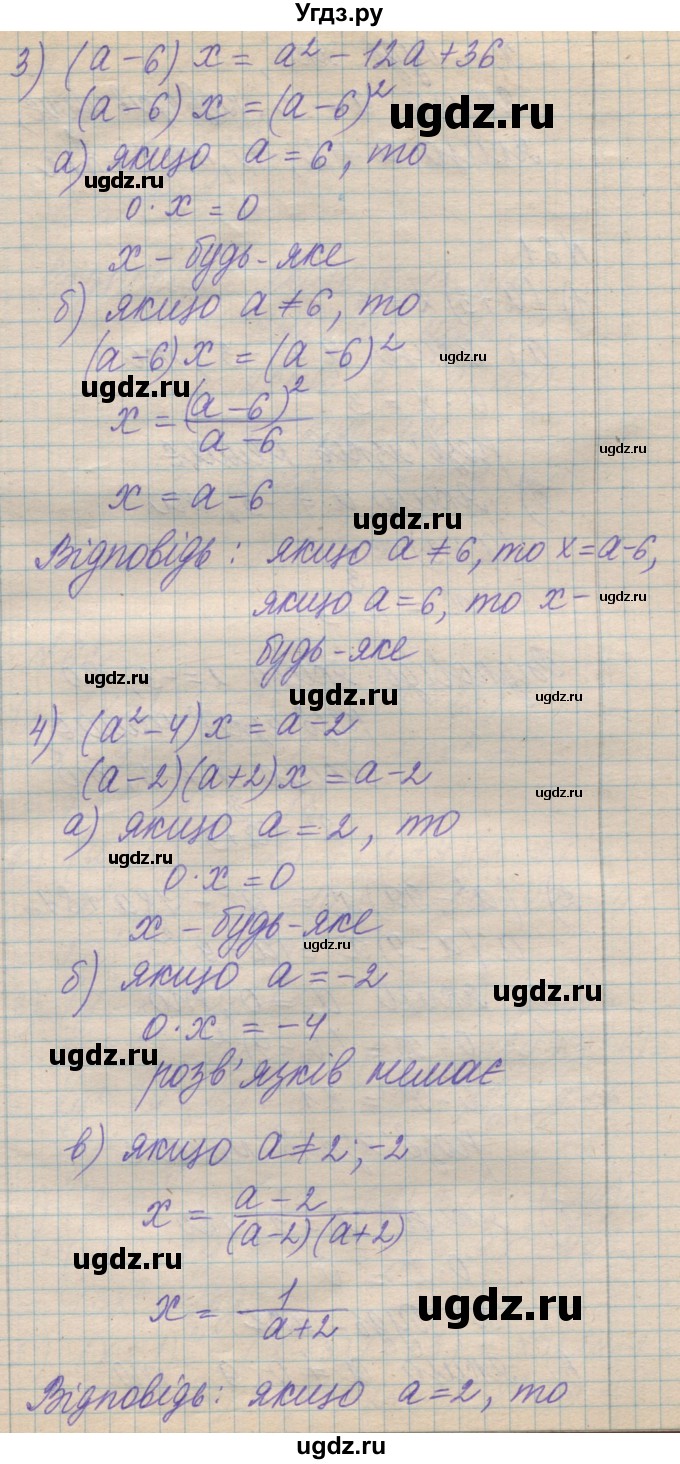 Угдз.ру
3) (a-6) x = a² - 12a + 36
(a-6) x = (a-6)²
ugdz.ru
а) якщо a = 6, то
ugdz.ru
0·x = 0
x - будь-яке
б) якщо a ≠ 6, то
(a-6) x = (a-6)²
ugdz.ru
ugdz.ru
x = (a-6)²/(a-6)
ugdz.ru
x = a-6
ugdz.ru
Відповідь: якщо a ≠ 6, то x = a-6,
якщо a = 6, то x -
ugdz.ru
будь-яке
ugdz.ru
ugdz.ru
ugdz.ru
4) (a²-4) x = a-2
(a-2)(a+2) x = a-2
ugdz.ru
а) якщо a = 2, то
ugdz.ru
0·x = 0
x - будь-яке
ugdz.ru
б) якщо a = -2
ugdz.ru
0·x = -4
ugdz.ru
розв'язків немає
в) якщо a ≠ 2; -2
x = (a-2)/((a-2)(a+2))
ugdz.ru
x = 1/(a+2)
ugdz.ru
Відповідь: якщо a = 2, то
ugdz.ru